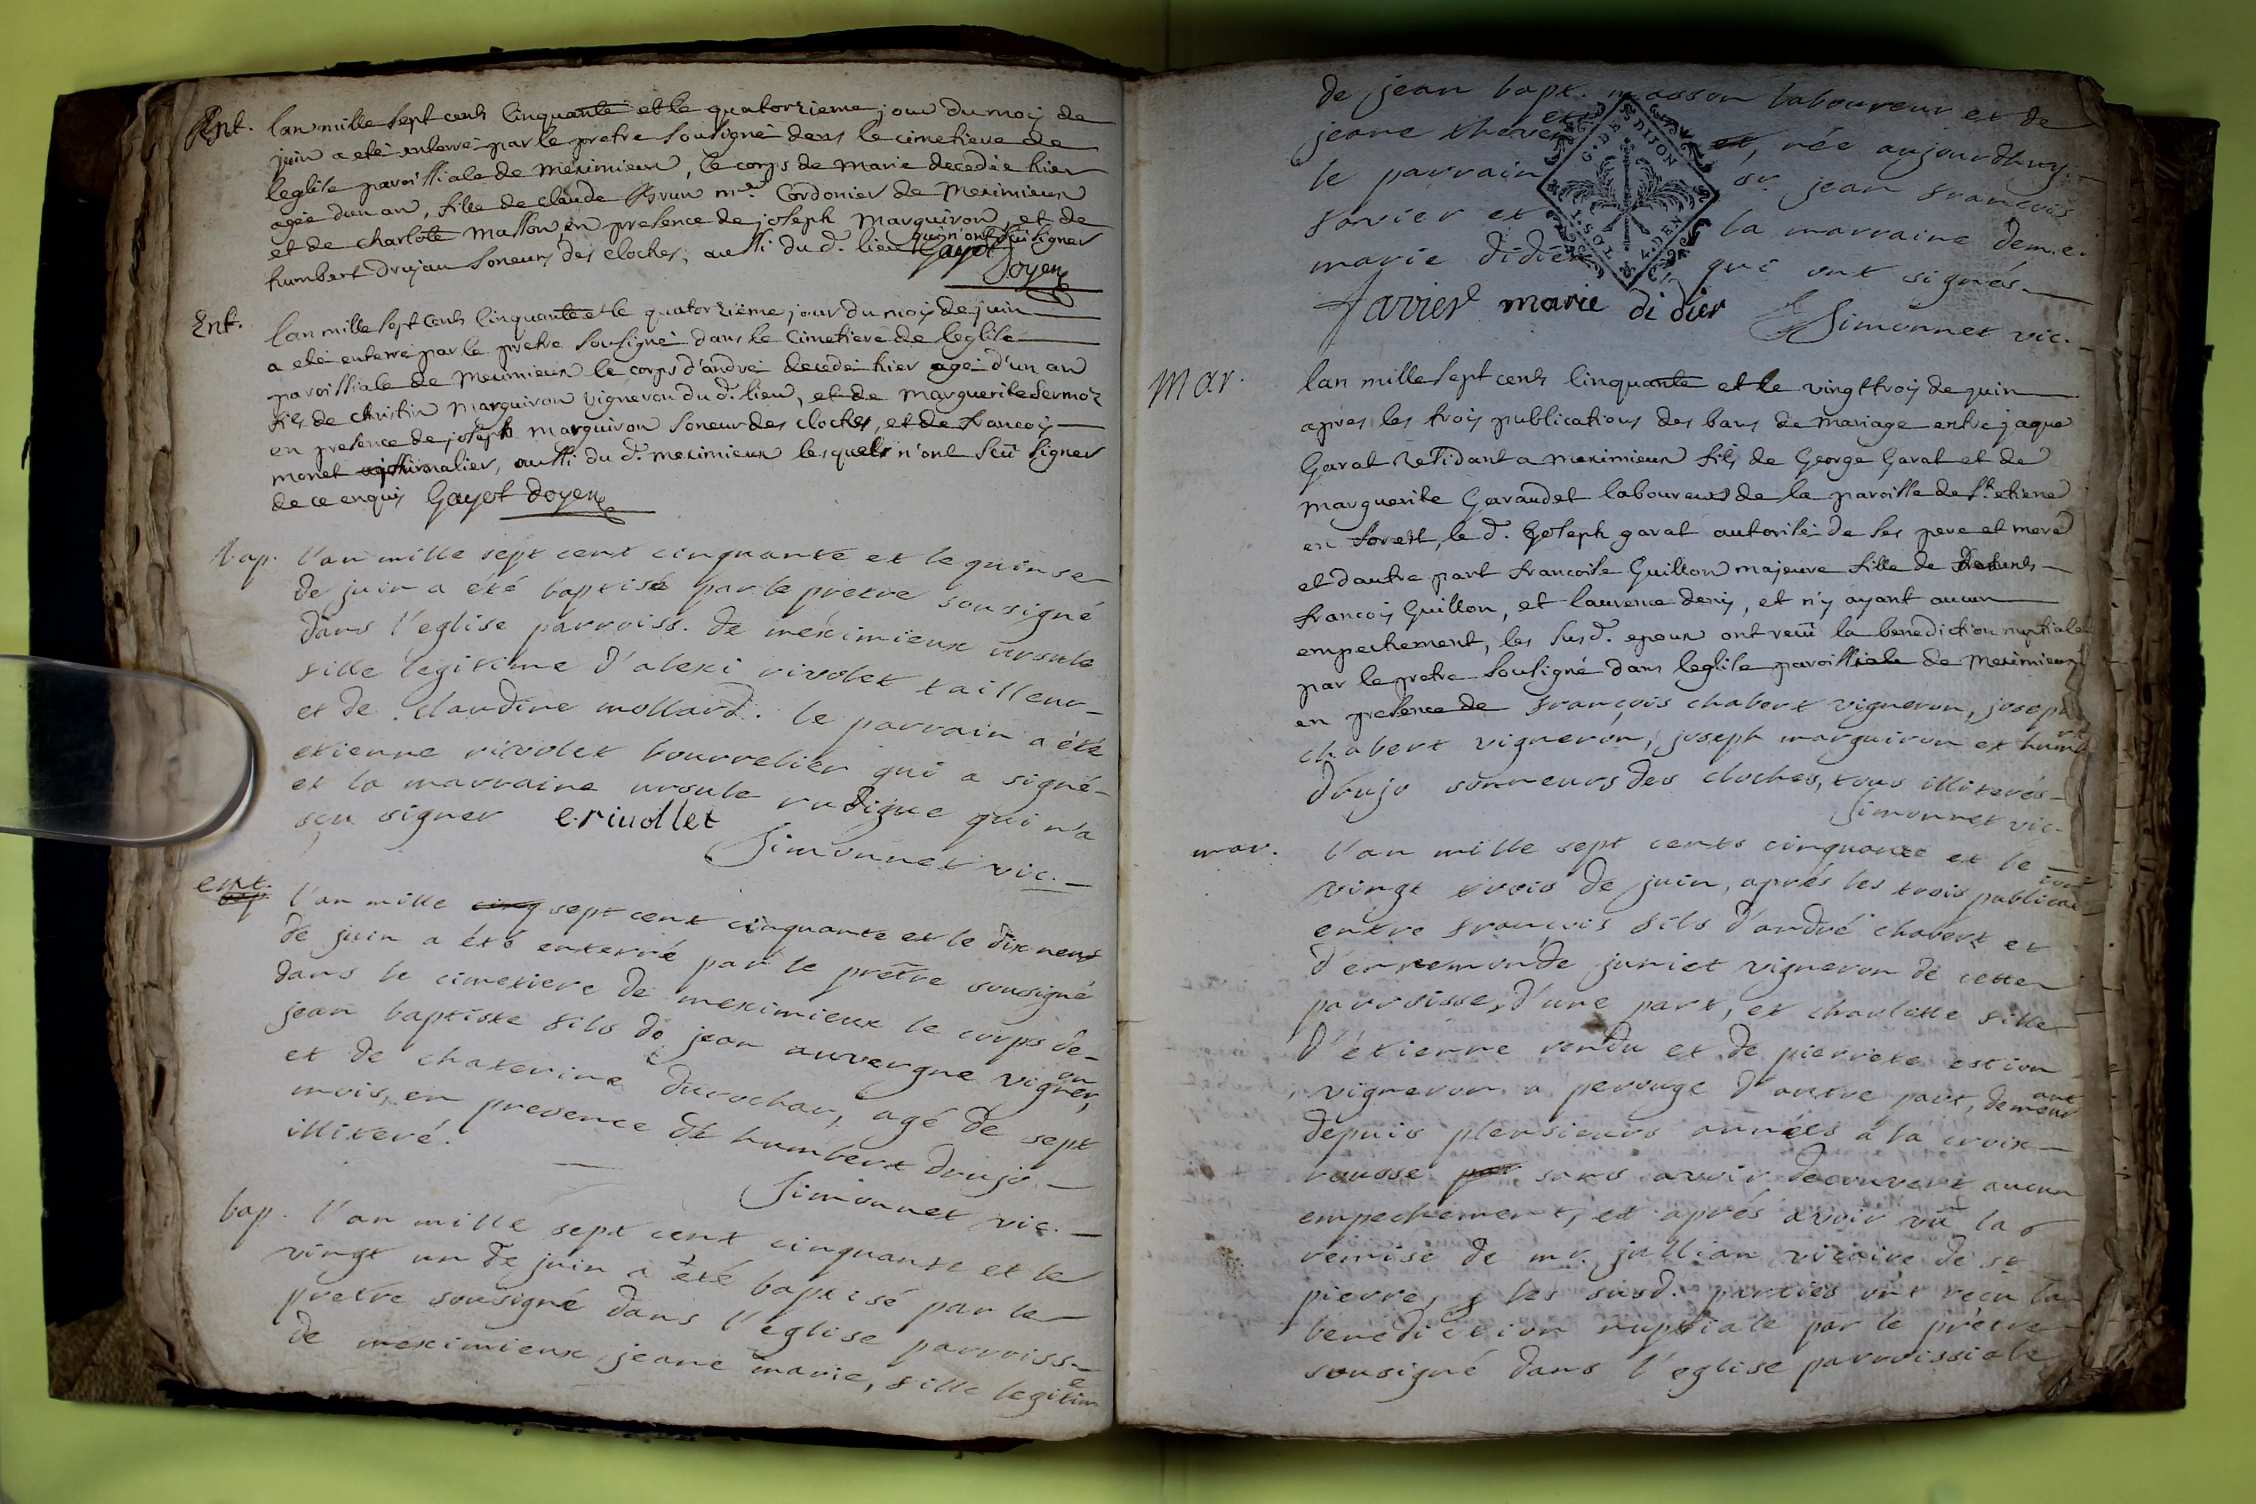 Ent. lan mille sept cents cinquante et le quatorzieme jour du moy de
juin a eté enterré par le pretre sousigné dans le cimetiere de
leglise paroissiale de meximieux, le corps de marie decedée hier
agée dun an, fille de claude Brun mre Cordonier de meximieux
et de charlote masson, en presence de joseph marguiron, et de
humbert drujau soneurs des cloches, aussi du d. lieu qui n'ont sçu signer
Gayot Doyen
Ent. lan mille sept cents cinquante et le quatorzieme jour du moy de juin
a eté enterré par le pretre sousigné dans le cimetiere de leglise
paroissiale de meximieux le corps d'andré decedé hier agé d'un an
fils de christin marguiron vigneron du d. lieu, et de marguerite sermoz
en presence de joseph marguiron soneur des cloches, et de francois
monet aussi du d. meximieux lesquels n'ont sçu signer
de ce enquis Gayot doyen
bap. l'an mille sept cent cinquante et le quinse
de juin a été baptisé par le pretre sousigné
dans l'eglise parroiss. de meximieux ursule
fille legitime d'alexi rivolet tailleur
et de claudine mollard. le parrain a été
etienne rivolet bourrelier qui a signé
et la marraine ursule rudigue qui n'a
sçu signer e. riuollet
Simonnet vic.
ent. bap. l'an mille cinq sept cent cinquante et le dix neuf
de juin a été enterré par le prêtre sousigné
dans le cimetiere de meximieux le corps de
jean baptiste fils de jean auvergne vigneron,
et de chaterine durochar, agé de sept
mois, en presence de humbert drujo
illiteré.
Simonnet vic.
bap. l'an mille sept cent cinquante et le
vingt un de juin a été baptisé par le
pretre sousigné dans l'eglise parroiss.
de meximieux jeane marie, fille legitime
de jean bapt. masson laboureur et de
jeane theven et, née aujourdhuy.
le parrain sr. jean francois
favier et la marraine dem.e
marie didier qui ont signés.
G. DE DIJON
favier marie didier Simonnet vic.
Mar. lan mille sept cents cinquante et le vingt troy de juin
apres les troy publications des bans de mariage entre jaque
Garat residant a meximieux fils de George Garat et de
marguerite Garaudet laboureurs de la paroisse de st. etiene
en forest, le d. Joseph garat autorisé de ses pere et mere
et d'autre part francoise Guillon majeure fille de defunts
francois Guillon, et laurence deny, et n'y ayant aucun
empechement, les susd. epoux ont receu la benediction nuptiale
par le pretre sousigné dans leglise paroissiale de meximieux
en presence de françois chabert vigneron, joseph
chabert vigneron, joseph marguiron et humbert
drujo sonneurs des cloches, tous illiterés
Simonnet vic.
mar. l'an mille sept cents cinquante et le
vingt trois de juin, aprés les trois publications
entre françois fils d'andré chabert et
d'ennemonde juniet vigneron de cette
parroisse, d'une part, et charlotte fille
d'étienne rendu et de pierrete estion
vigneron a perouge d'autre part, demeurant
depuis plensieurs années a la croix
rousse par sans avoir decouvert aucun
empechement, et aprés avoir vû la
remise de mr. jullian vicaire de st
pierre, les susd. parties ont reçu la
benediction nuptiale par le prêtre
sousigné dans l'eglise parroissiale